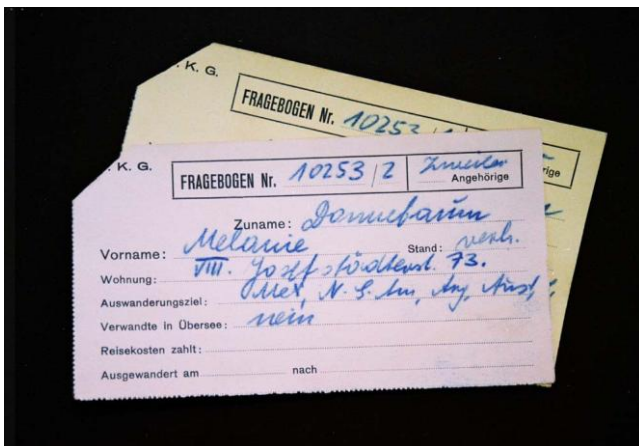 K. G.
FRAGEBOGEN Nr. 10253
K. G.
FRAGEBOGEN Nr. 10253/2 Angehörige
Zuname: Dannebaum
Vorname: Melanie Stand: verh.
Wohnung: VIII. Josefstädterst. 73.
Auswanderungsziel: Mex, N. S. Am, Arg, Aust,
Verwandte in Übersee: nein
Reisekosten zahlt:
Ausgewandert am nach